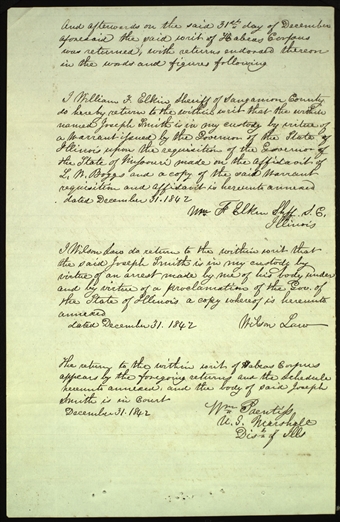 And afterwards on the said 31st day of December
aforesaid the said writ of Habeas Corpus
was returned, with returns endorsed thereon
in the words and figures following
I William F. Elkin Sheriff of Sangamon County
do hereby return to the within writ that the within
named Joseph Smith is in my custody by virtue of
a Warrant issued by the Governor of the State of
Illinois upon the requisition of the Governor of
the State of Missouri made on the affidavit of
L. W. Boggs and a copy of the said Warrant
requisition and affidavit is hereunto annexed
dated December 31. 1842
Wm F Elkin Shff S. C.
Illinois
I Wilson Law do return to the within writ that
the said Joseph Smith is in my custody by
virtue of an arrest made by me of his body under
and by virtue of a proclamation of the Gov. of
the State of Illinois a copy whereof is hereunto
annexed
dated December 31. 1842 Wilson Law
The return to the within writ of Habeas Corpus
appears by the foregoing return and the schedule
hereunto annexed and the body of said Joseph
Smith is in Court
December 31. 1842
Wm Prentiss
U. S. Marshall
Dist of Ills